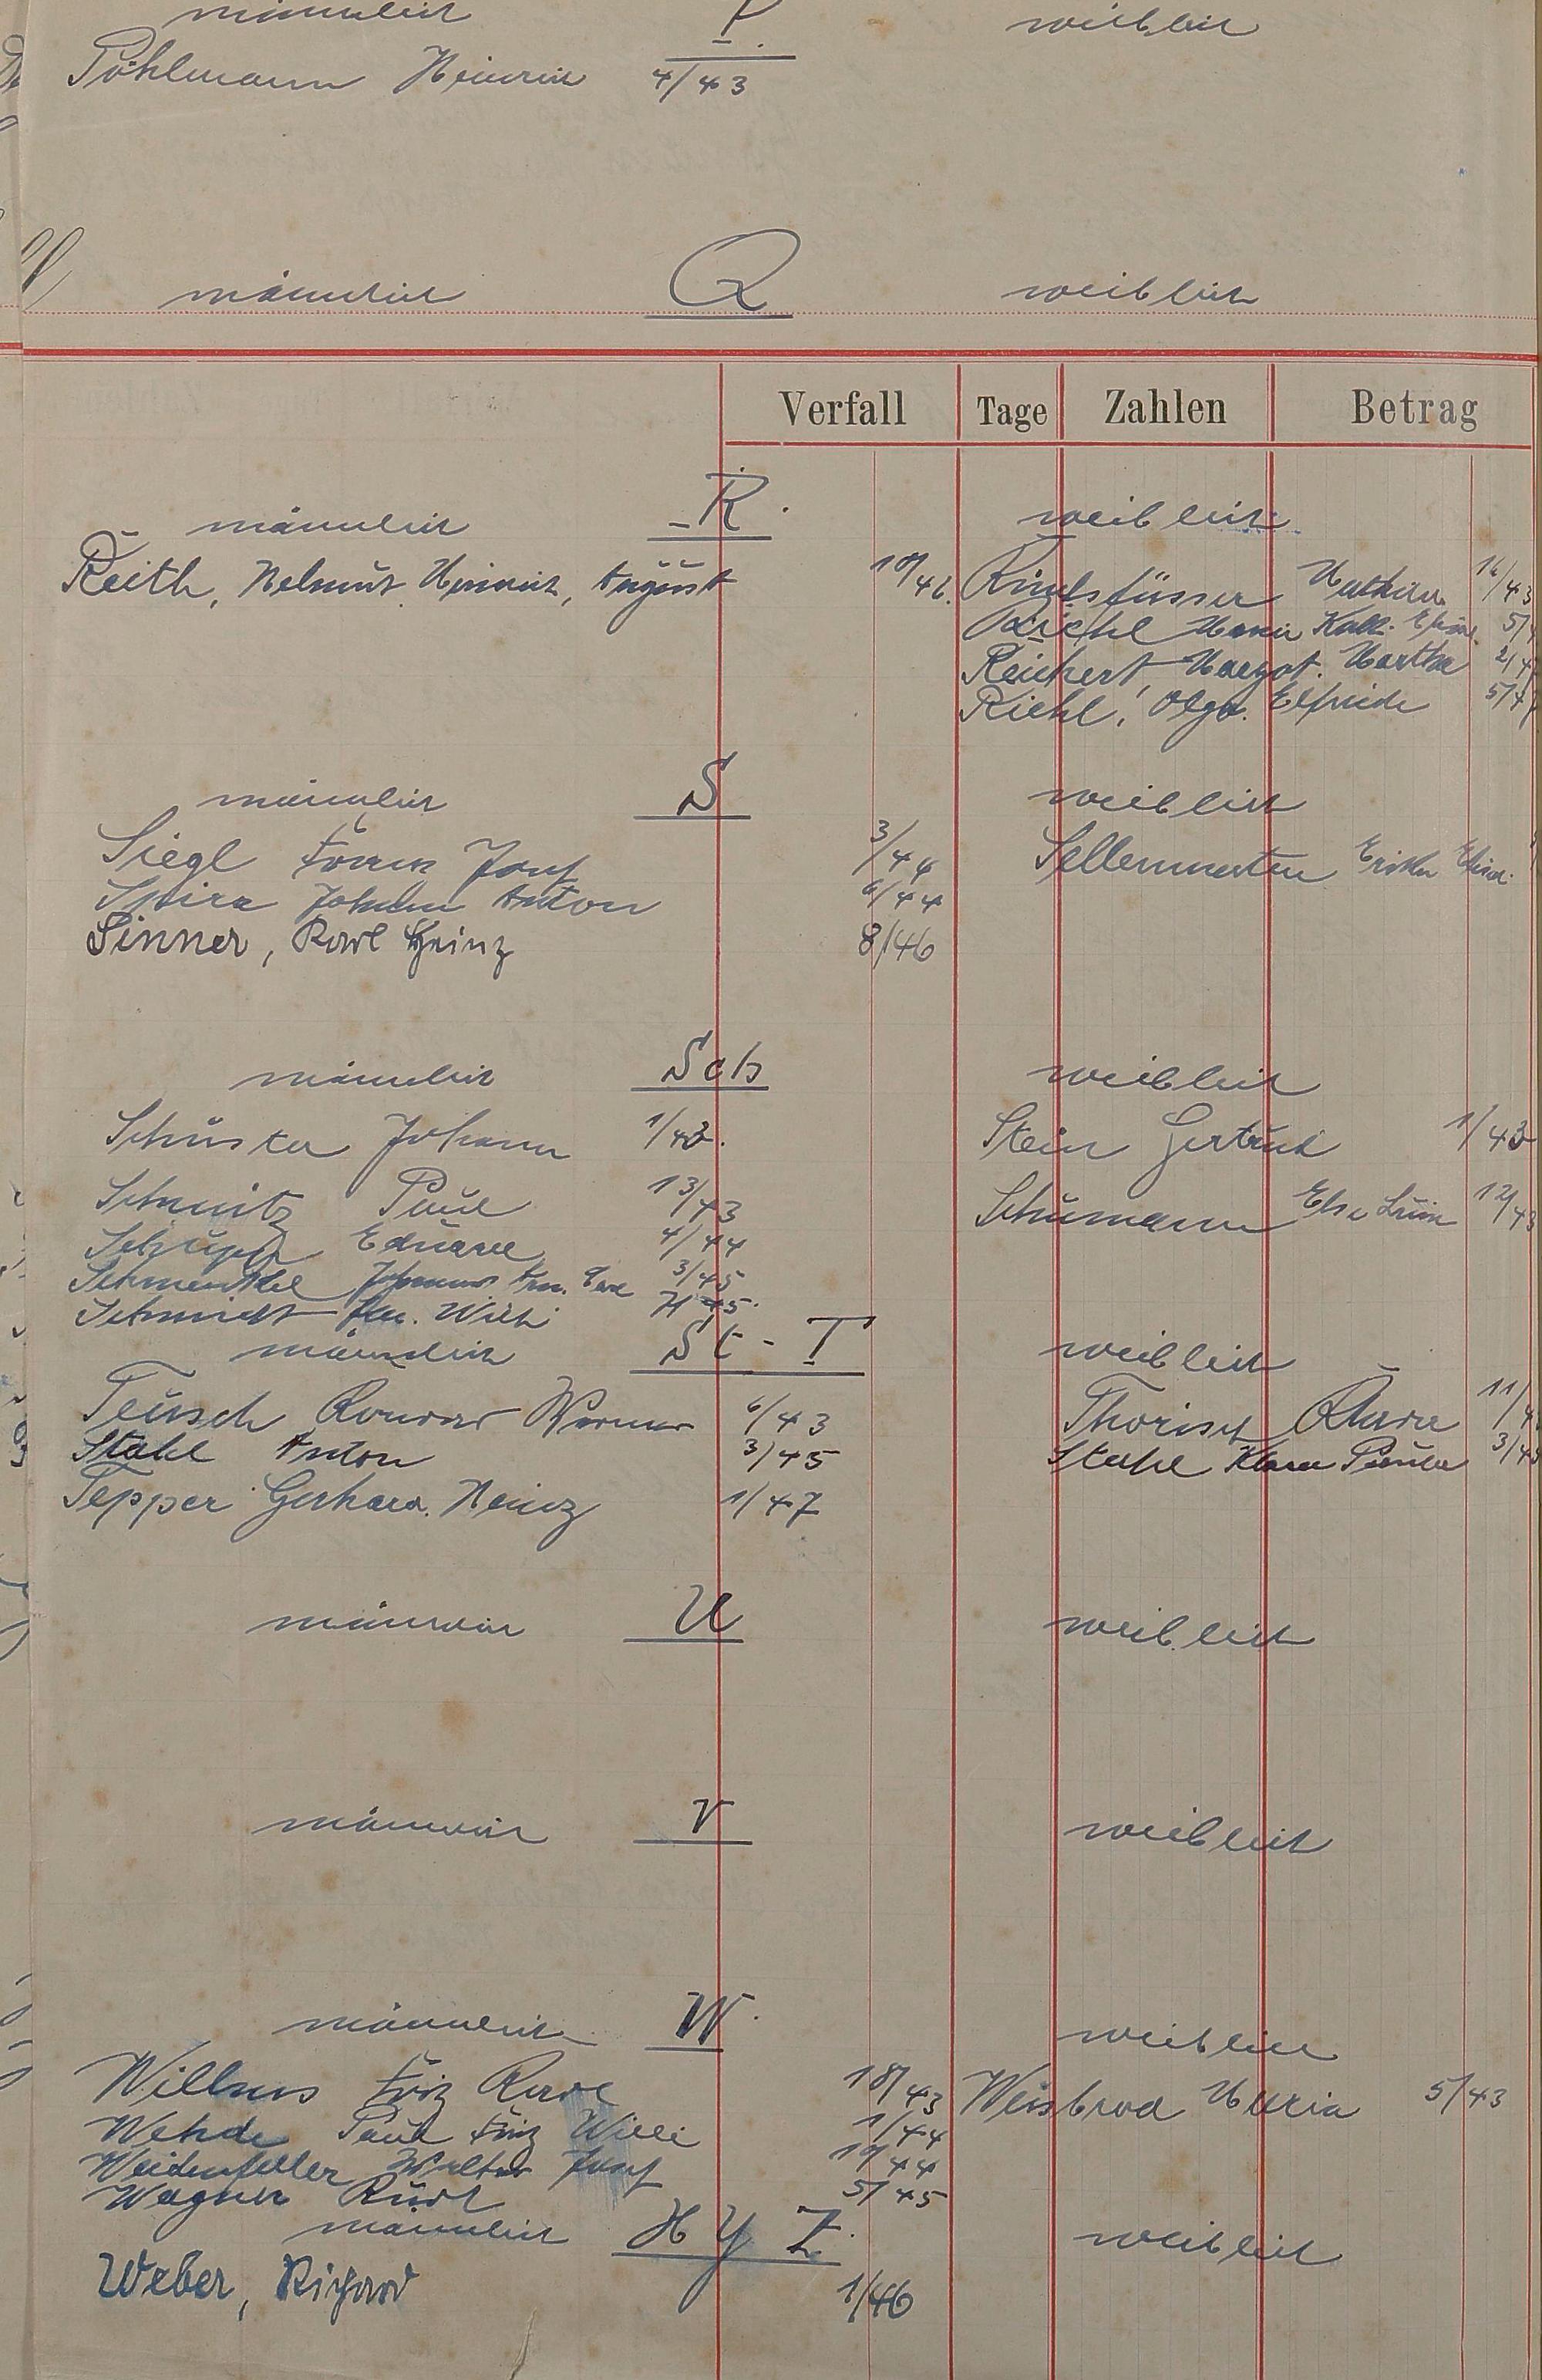 männlich P. weiblich
Pöhlmann Heinrich 4/43
männlich Q weiblich
Verfall Tage Zahlen Betrag
männlich R. weiblich
Reith, Helmut Heinrich, August 10/46. Rindsfüsser 16/43
Riehl Maria Kath. 5/4
Reichert, Margot. Martha 2/4
Riehl, Olga. Elfriede 5/47
männlich S weiblich
Siegl Franz Josef 3/44 Sellermerten Erika
Spira Johann Anton 6/44
Sinner, Karl Heinz 8/46
männlich Sch weiblich
Schuster Johann 1/43. Stein Gertrud 1/43
Schmitz Paul 13/43 Schumann Else Luise 12/43
Schupp Eduard 4/44
Schmenkel Johannes 3/45
Schmidt Willi 7/45.
männlich St - T weiblich
Teusch Konrad Werner 6/43 Thorisch Klara 11/4
Stahl Anton 3/45 Stahl Klara Paula 3/45
Tepper Gerhard. Heinz 1/47
männlich U weiblich
männlich V weiblich
männlich W. weiblich
Willms Fritz Karl 18/43 Weisbrod Maria 5/43
Wehde Paul Fritz Willi 1/44
Weidenfeller Walter Josef 19/44
Wagner Kurt 5/45
männlich X Y Z. weiblich
Weber, Richard 1/46